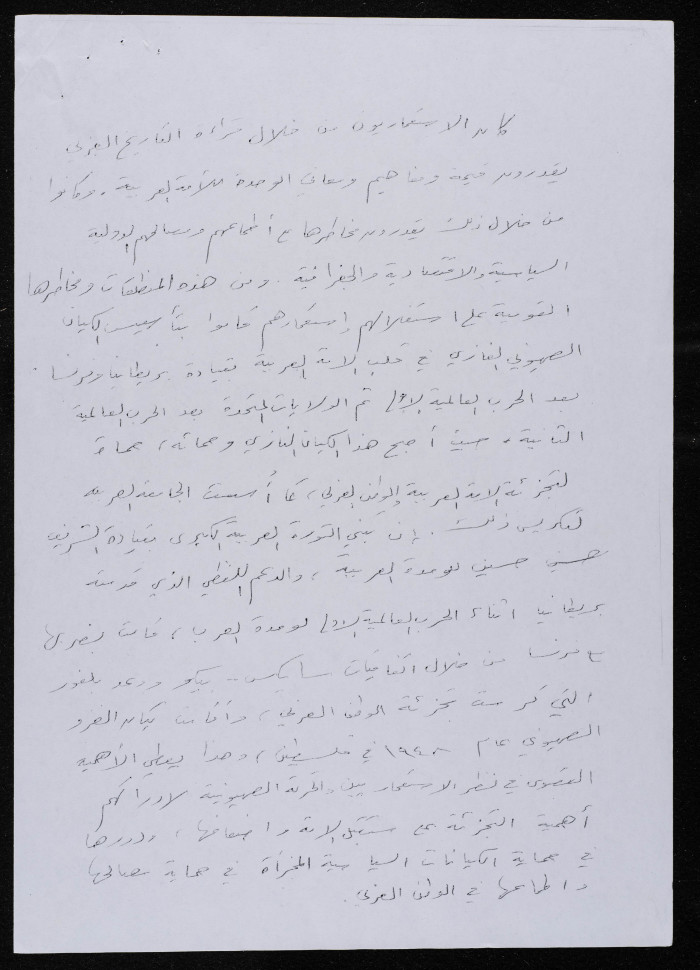 كان الاستعماريون من خلال قراءة التاريخ العربي
يقدرون قيمة ومفاهيم ومعاني الوحدة للأمة العربية، وكانوا
من خلال ذلك يقدرون مخاطرها مع أطماعهم ومصالحهم الدولية
السياسية والاقتصادية والجغرافية. ومن هذه المنطلقات ومخاطرها
القومية على استغلالهم واستعمارهم قاموا بتأسيس الكيان
الصهيوني الغازي في قلب الامة العربية بقيادة بريطانيا وفرنسا
بعد الحرب العالمية الاولى ثم الولايات المتحدة بعد الحرب العالمية
الثانية، حيث أصبح هذا الكيان الغازي وحماته، حماة
لتجزئة الامة العربية والوطن العربي، كما أسست الجامعة العربية
لتكريس ذلك. إن تبني الثورة العربية الكبرى بقيادة الشريف
حسين للوحدة العربية، والدعم اللفظي الذي قدمته
بريطانيا اثناء الحرب العالمية الاولى لوحدة العرب، قامت بضربها
مع فرنسا من خلال اتفاقيات سايكس - بيكو ووعد بلفور
التي كرست تجزئة الوطن العربي، وأقامت كيان الغزو
الصهيوني عام ١٩٤٨ في فلسطين، وهذا يعطي الأهمية
القصوى في نظر الاستعماريين والحركة الصهيونية لادراكهم
أهمية التجزئة على مستقبل الامة واضعافها، ودورها
في حماية الكيانات السياسية المجزأة في حماية مصالحها
واطماعها في الوطن العربي.